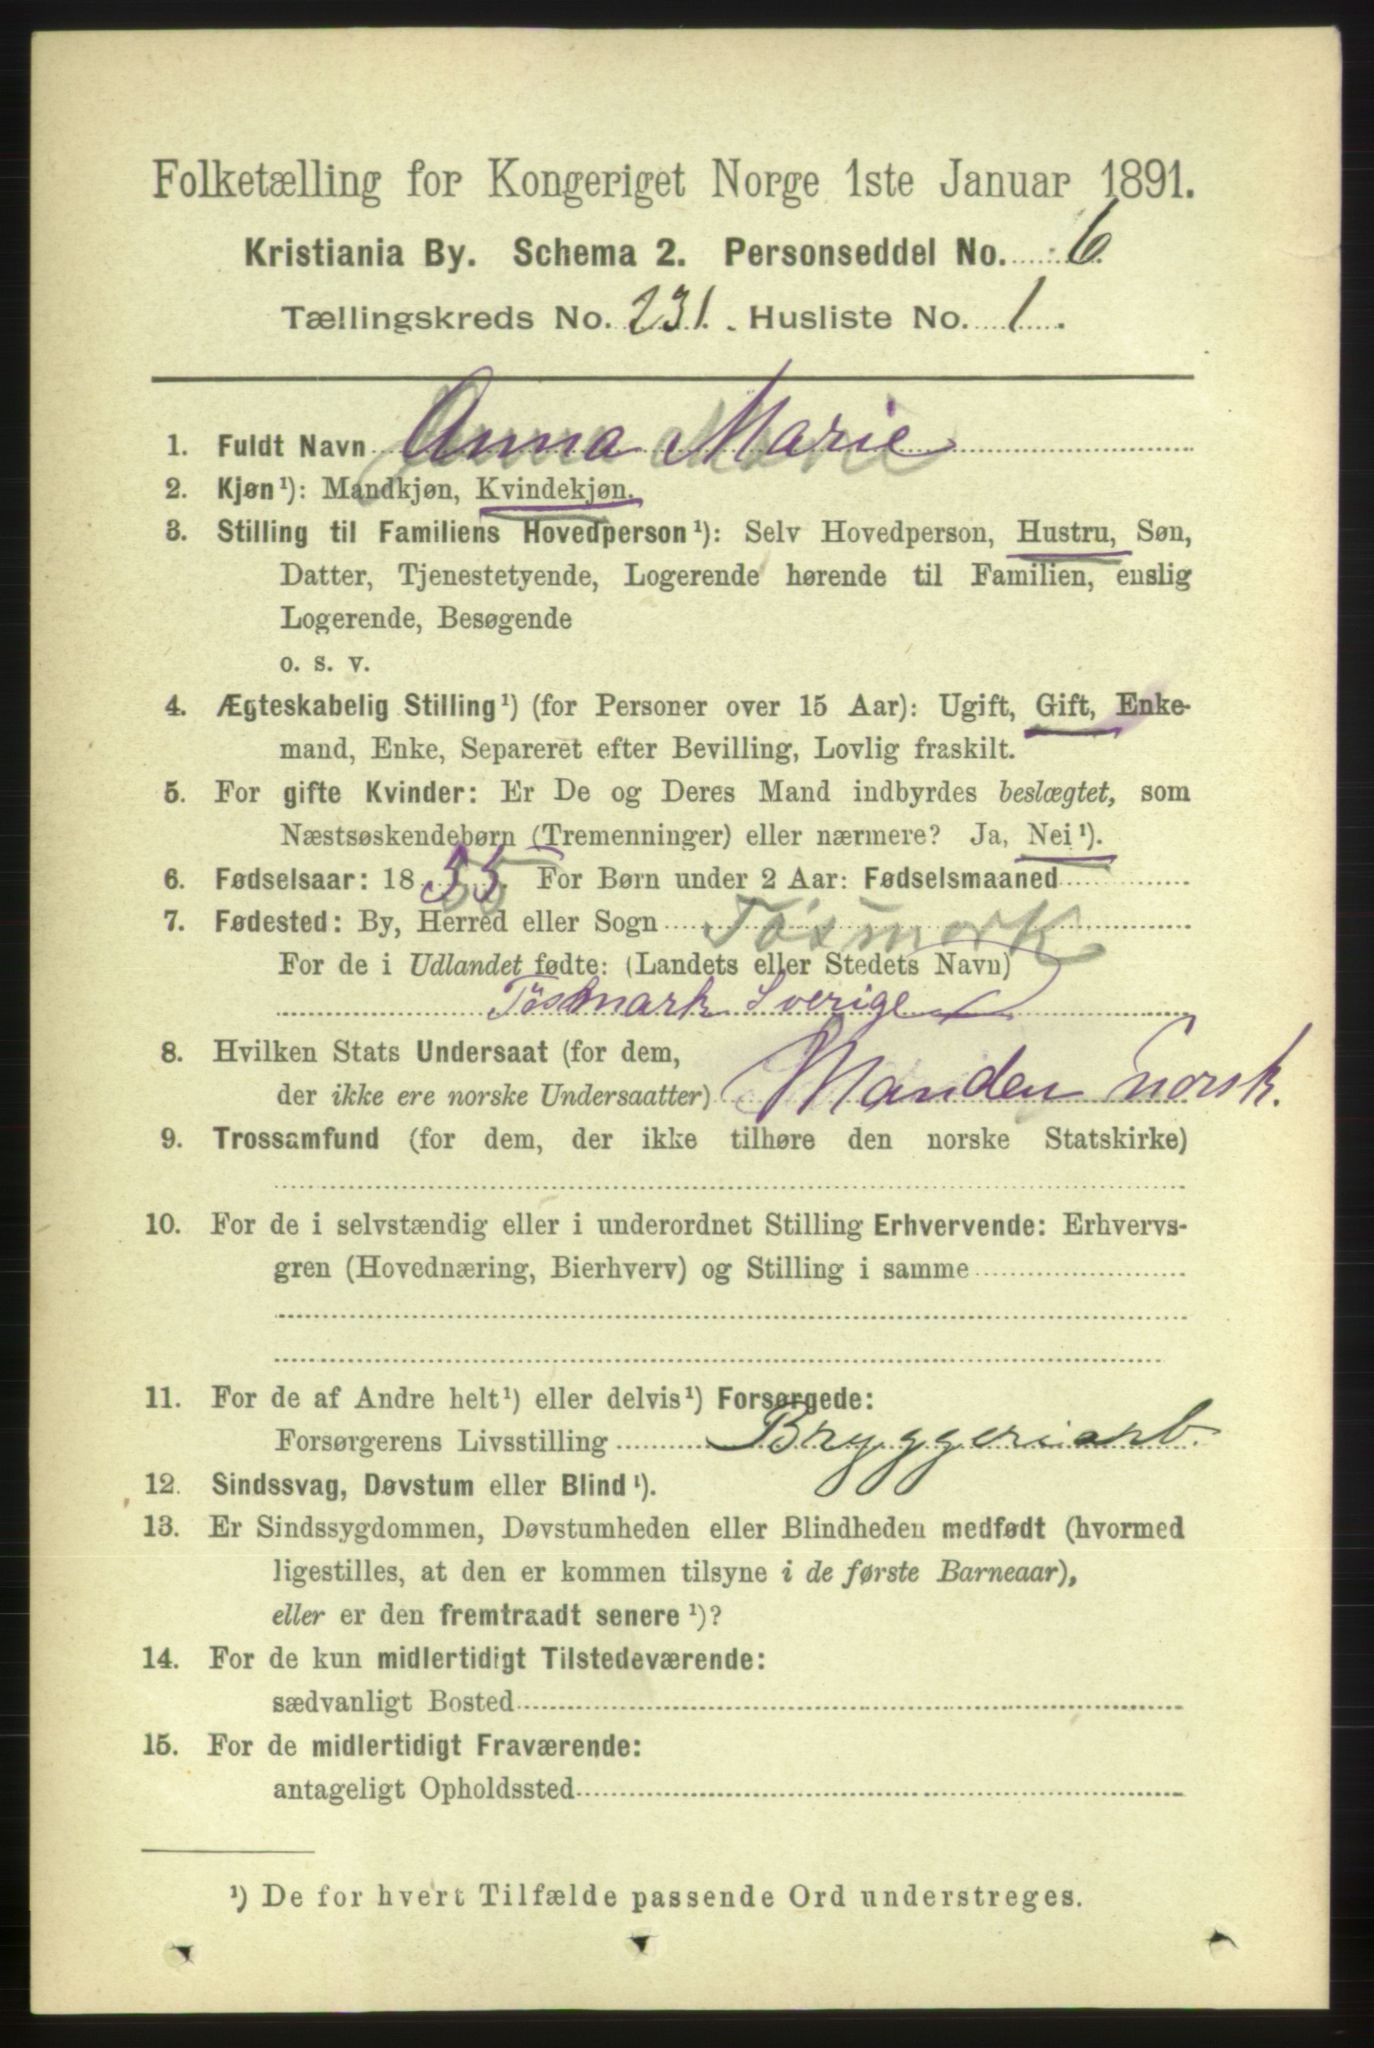 Folketælling for Kongeriget Norge 1ste Januar 1891.
Kristiania By. Schema 2. Personseddel No. 6
Tællingskreds No. 231. Husliste No. 1.
1. Fuldt Navn Anna Marie
2. Kjøn¹): Mandkjøn, Kvindekjøn.
3. Stilling til Familiens Hovedperson¹): Selv Hovedperson, Hustru, Søn,
Datter, Tjenestetyende, Logerende hørende til Familien, enslig
Logerende, Besøgende
o. s. v.
4. Ægteskabelig Stilling¹) (for Personer over 15 Aar): Ugift, Gift, Enke-
mand, Enke, Separeret efter Bevilling, Lovlig fraskilt.
5. For gifte Kvinder: Er De og Deres Mand indbyrdes beslægtet, som
Næstsøskendebørn (Tremenninger) eller nærmere? Ja, Nei¹).
6. Fødselsaar: 1855. For Børn under 2 Aar: Fødselsmaaned
7. Fødested: By, Herred eller Sogn Tøsmork
For de i Udlandet fødte: (Landets eller Stedets Navn)
Tösmark Sverige
8. Hvilken Stats Undersaat (for dem,
der ikke ere norske Undersaatter) Manden norsk.
9. Trossamfund (for dem, der ikke tilhøre den norske Statskirke)
10. For de i selvstændig eller i underordnet Stilling Erhvervende: Erhvervs-
gren (Hovednæring, Bierhverv) og Stilling i samme
11. For de af Andre helt¹) eller delvis¹) Forsørgede:
Forsørgerens Livsstilling Bryggeriarb.
12. Sindssvag, Døvstum eller Blind¹).
13. Er Sindssygdommen, Døvstumheden eller Blindheden medfødt (hvormed
ligestilles, at den er kommen tilsyne i de første Barneaar),
eller er den fremtraadt senere¹)?
14. For de kun midlertidigt Tilstedeværende:
sædvanligt Bosted
15. For de midlertidigt Fraværende:
antageligt Opholdssted
¹) De for hvert Tilfælde passende Ord understreges.